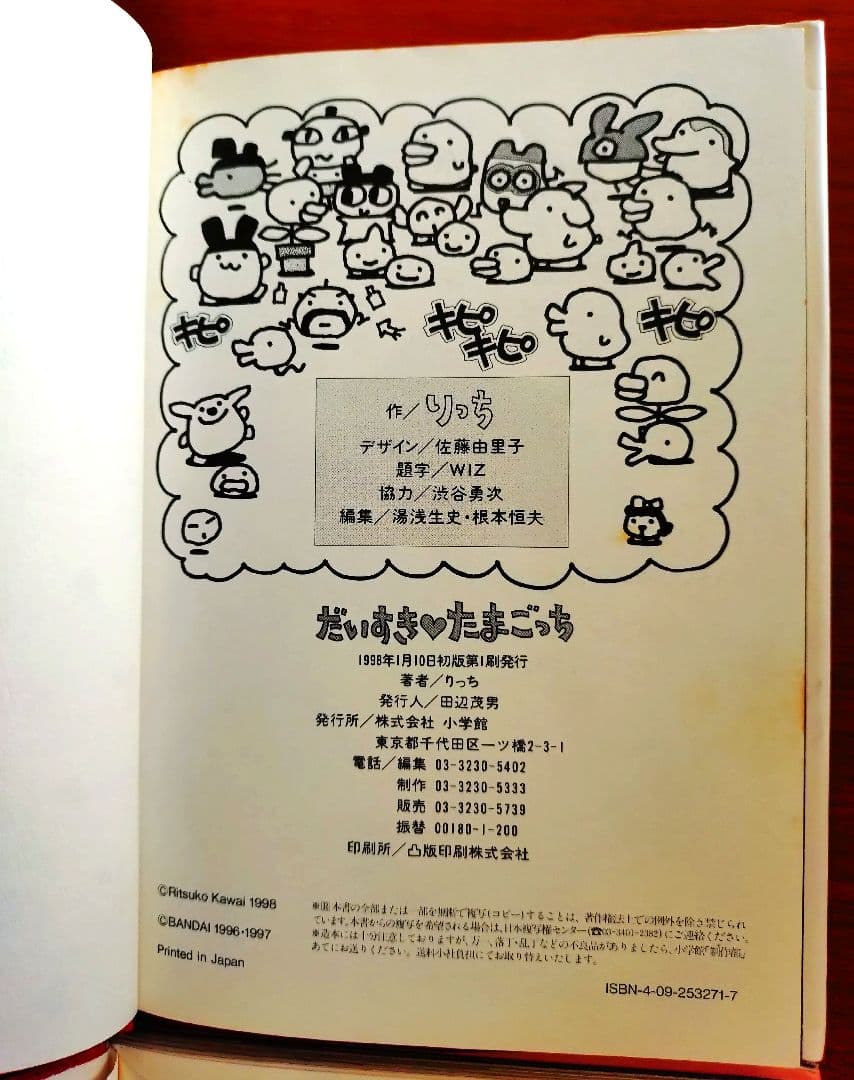 キピ
キピ
キピ
キピ
作／りっち
デザイン／佐藤由里子
題字／WIZ
協力／渋谷勇次
編集／湯浅生史・根本恒夫
だいすき♥たまごっち
1998年1月10日初版第1刷発行
著者／りっち
発行人／田辺茂男
発行所／株式会社 小学館
東京都千代田区一ツ橋2-3-1
電話／編集 03-3230-5402
制作 03-3230-5333
販売 03-3230-5739
振替 00180-1-200
印刷所／凸版印刷株式会社
©Ritsuko Kawai 1998
©BANDAI 1996・1997
Printed in Japan
※Ⓡ本書の全部または一部を無断で複写(コピー)することは、著作権法上での例外を除き禁じられ
ています。本書からの複写を希望される場合は、日本複写権センター(☎03-3401-2382)にご連絡ください。
※造本には十分注意しておりますが、万一、落丁・乱丁などの不良品がありましたら、小学館「制作部」
あてにお送りください。送料小社負担にてお取り替えいたします。
ISBN-4-09-253271-7